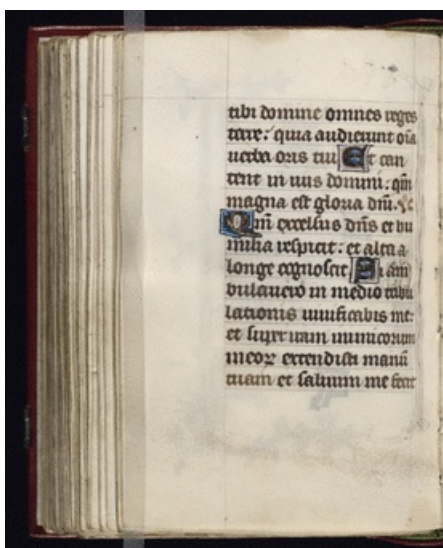 tibi domine omnes reges
terre: quia audierunt oīa
uerba oris tui Et can
tent in uiis domini: qm̄
magna est gloria dn̄i.
Qm̄ excelsus dn̄s et hu
milia respicit: et alta a
longe cognoscit Si am
bulauero in medio tribu
lationis uiuificabis me:
et super iram inimicorum
meoꝝ extendisti manū
tuam et saluum me fecit